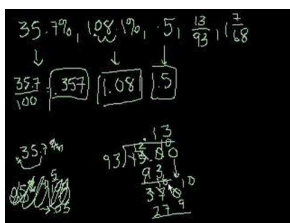 35.7%, 108.1%, .5, 13/93, 1 7/68
35.7/100 = .357 1.081 1.5
35.7%
.13
93)13.00
93
370
279